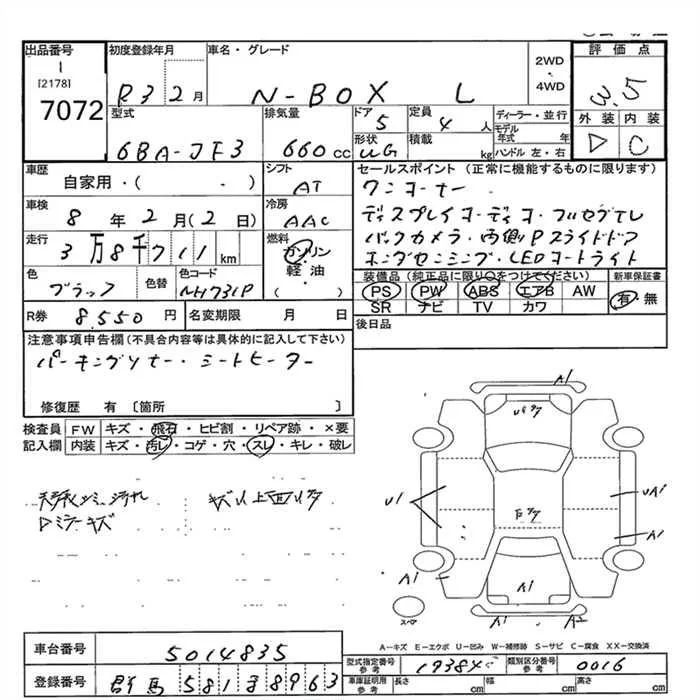 出品番号 初度登録年月 車名・グレード 2WD ・ 4WD 評価点
1
[2178]
7072 R3 2月 N-BOX L 3.5
型式 排気量 ドア 5 定員 4人 ディーラー・並行 外装 内装
6BA-JF3 660cc 形状 UG 積載 kg モデル年式 年 ハンドル 左・右 C
車歴 シフト セールスポイント (正常に機能するものに限ります)
自家用・( - ) AT ワンオーナー
車検 冷房 ディスプレイオーディオ・フルセグTV
8年2月(2日) AAC バックカメラ・両側Pスライドドア
走行 燃料 ホンダセンシング・LEDオートライト
3万8千711km ガソリン・軽油・( )
色 ブラック 色替 色コード NH731P
装備品(純正品に限り○をつけてください) 新車保証書
PS PW ABS エアB AW 有・無
SR ナビ TV カワ
R券 8,550円 名変期限 月 日 後日品
注意事項申告欄(不具合内容等は具体的に記入して下さい)
パーキングソナー・シートヒーター
修復歴 有 〔箇所 〕
検査員 FW キズ・飛石・ヒビ割・リペア跡・×要
記入欄 内装 キズ・汚レ・コゲ・穴・スレ・キレ・破レ
天張シミ汚れ キズ
Dミラーキズ
A1
U1 UA1
A1
A1 A1
スペア A1 A2
A-キズ E-エクボ U-凹み W-補修跡 S-サビ C-腐食 XX-交換済
車台番号 5014835 型式指定番号 参考 19384 類別区分番号 参考 0016
登録番号 群馬 581 8963 車庫証明用 参考 長さ cm 幅 cm 高さ cm